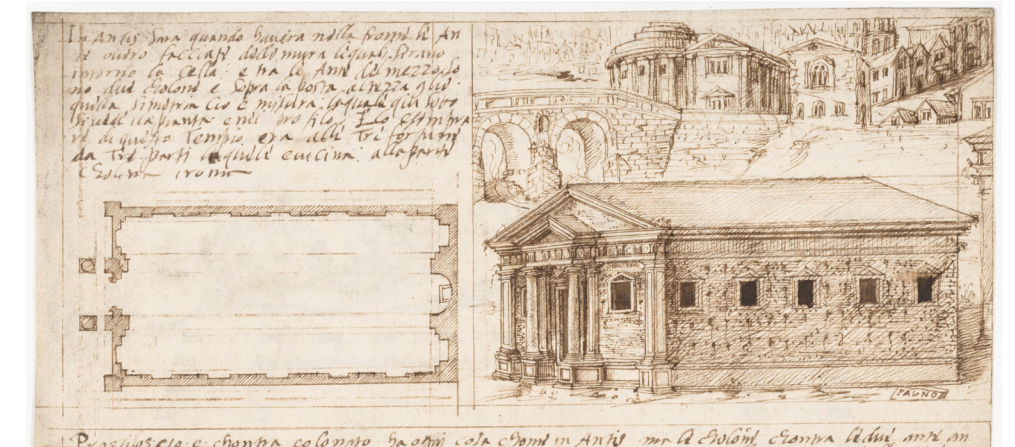 In Antis sara quando havera nella fronte le An
te overo facciate delle mura le quali serano
intorno la Cella; e tra le Ante del mezzo so
no due cholone e sopra la posta
quella simetria cio e misura; laquale qui sotto
si vede la pianta e nel profilo
re di questo Tempio era alle Tre fortune
da Tre parti laquale e vicina alla parte
Cholina
FAVNO
Prostilos cio e chontra colonato ha ogni cosa chome in Antis ma le cholone chontra le due ante an